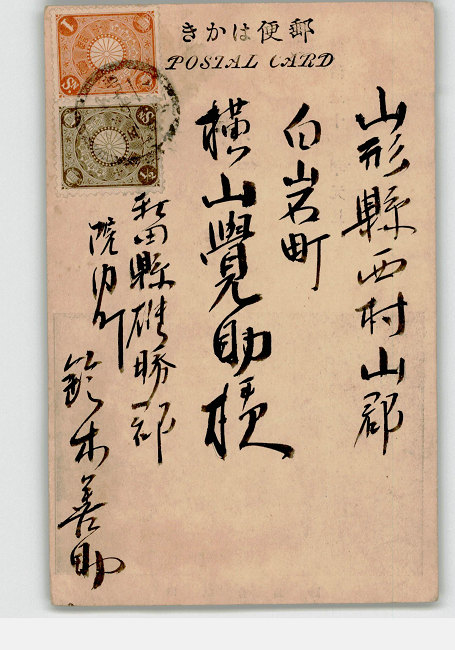 郵便はかき
POSTAL CARD
山形縣西村山郡
白岩町
横山覺助様
秋田縣雄勝郡
院内町
鈴木善助